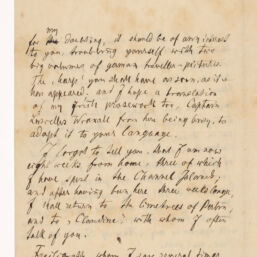 for my doubting, it should be of any interest
to you, troubling yourself with two
big volumes of german traveller-pictures.
The, "harp" you shall have as soon, as it
has appeared. and I hope a translation
of my first too, Captain
Lascelles Wraxall from here being busy, to
adapt it to your language.
I forgot to tell you, that I am now
eight weeks from home, three of which
I have spent in the Channel Islands,
and after having been here three weeks longer,
I shall return to the of
and to "Claudine", with whom I often
talk of you.
whom I saw several times